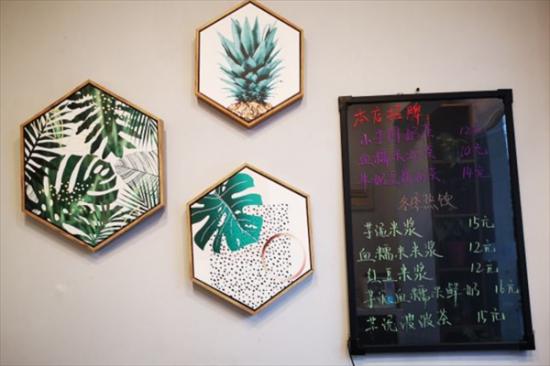 本店招牌
小芋 12元
血糯米 10元
牛奶 14元
冬季热饮
芋泥米浆 15元
血糯米米浆 12元
红豆米浆 12元
芋泥血糯米鲜奶 16元
芋泥波波茶 15元